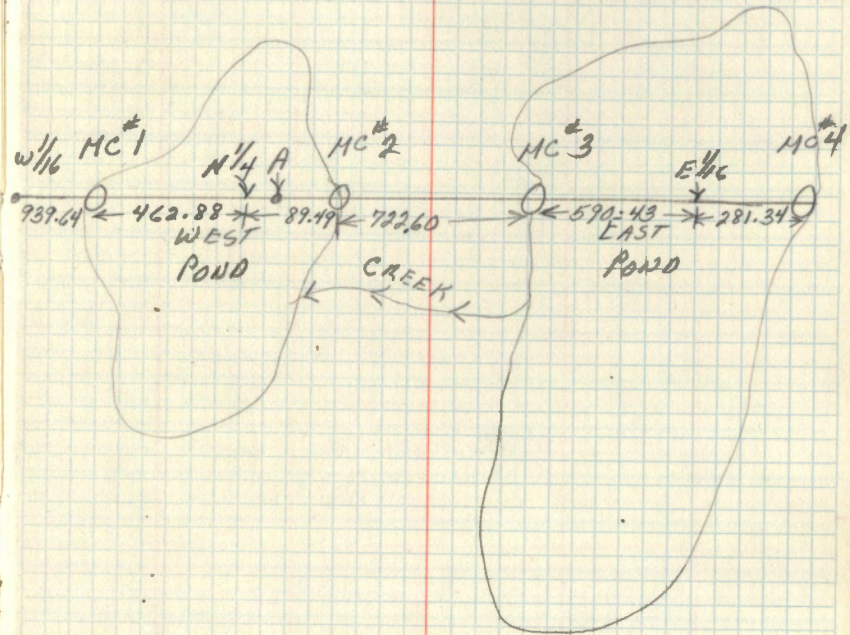 W 1/16 MC #1 N 1/4 A MC #2 MC #3 E 1/16 MC #4
939.64 462.88 89.49 722.60 590.43 281.34
WEST
POND
CREEK
EAST
POND